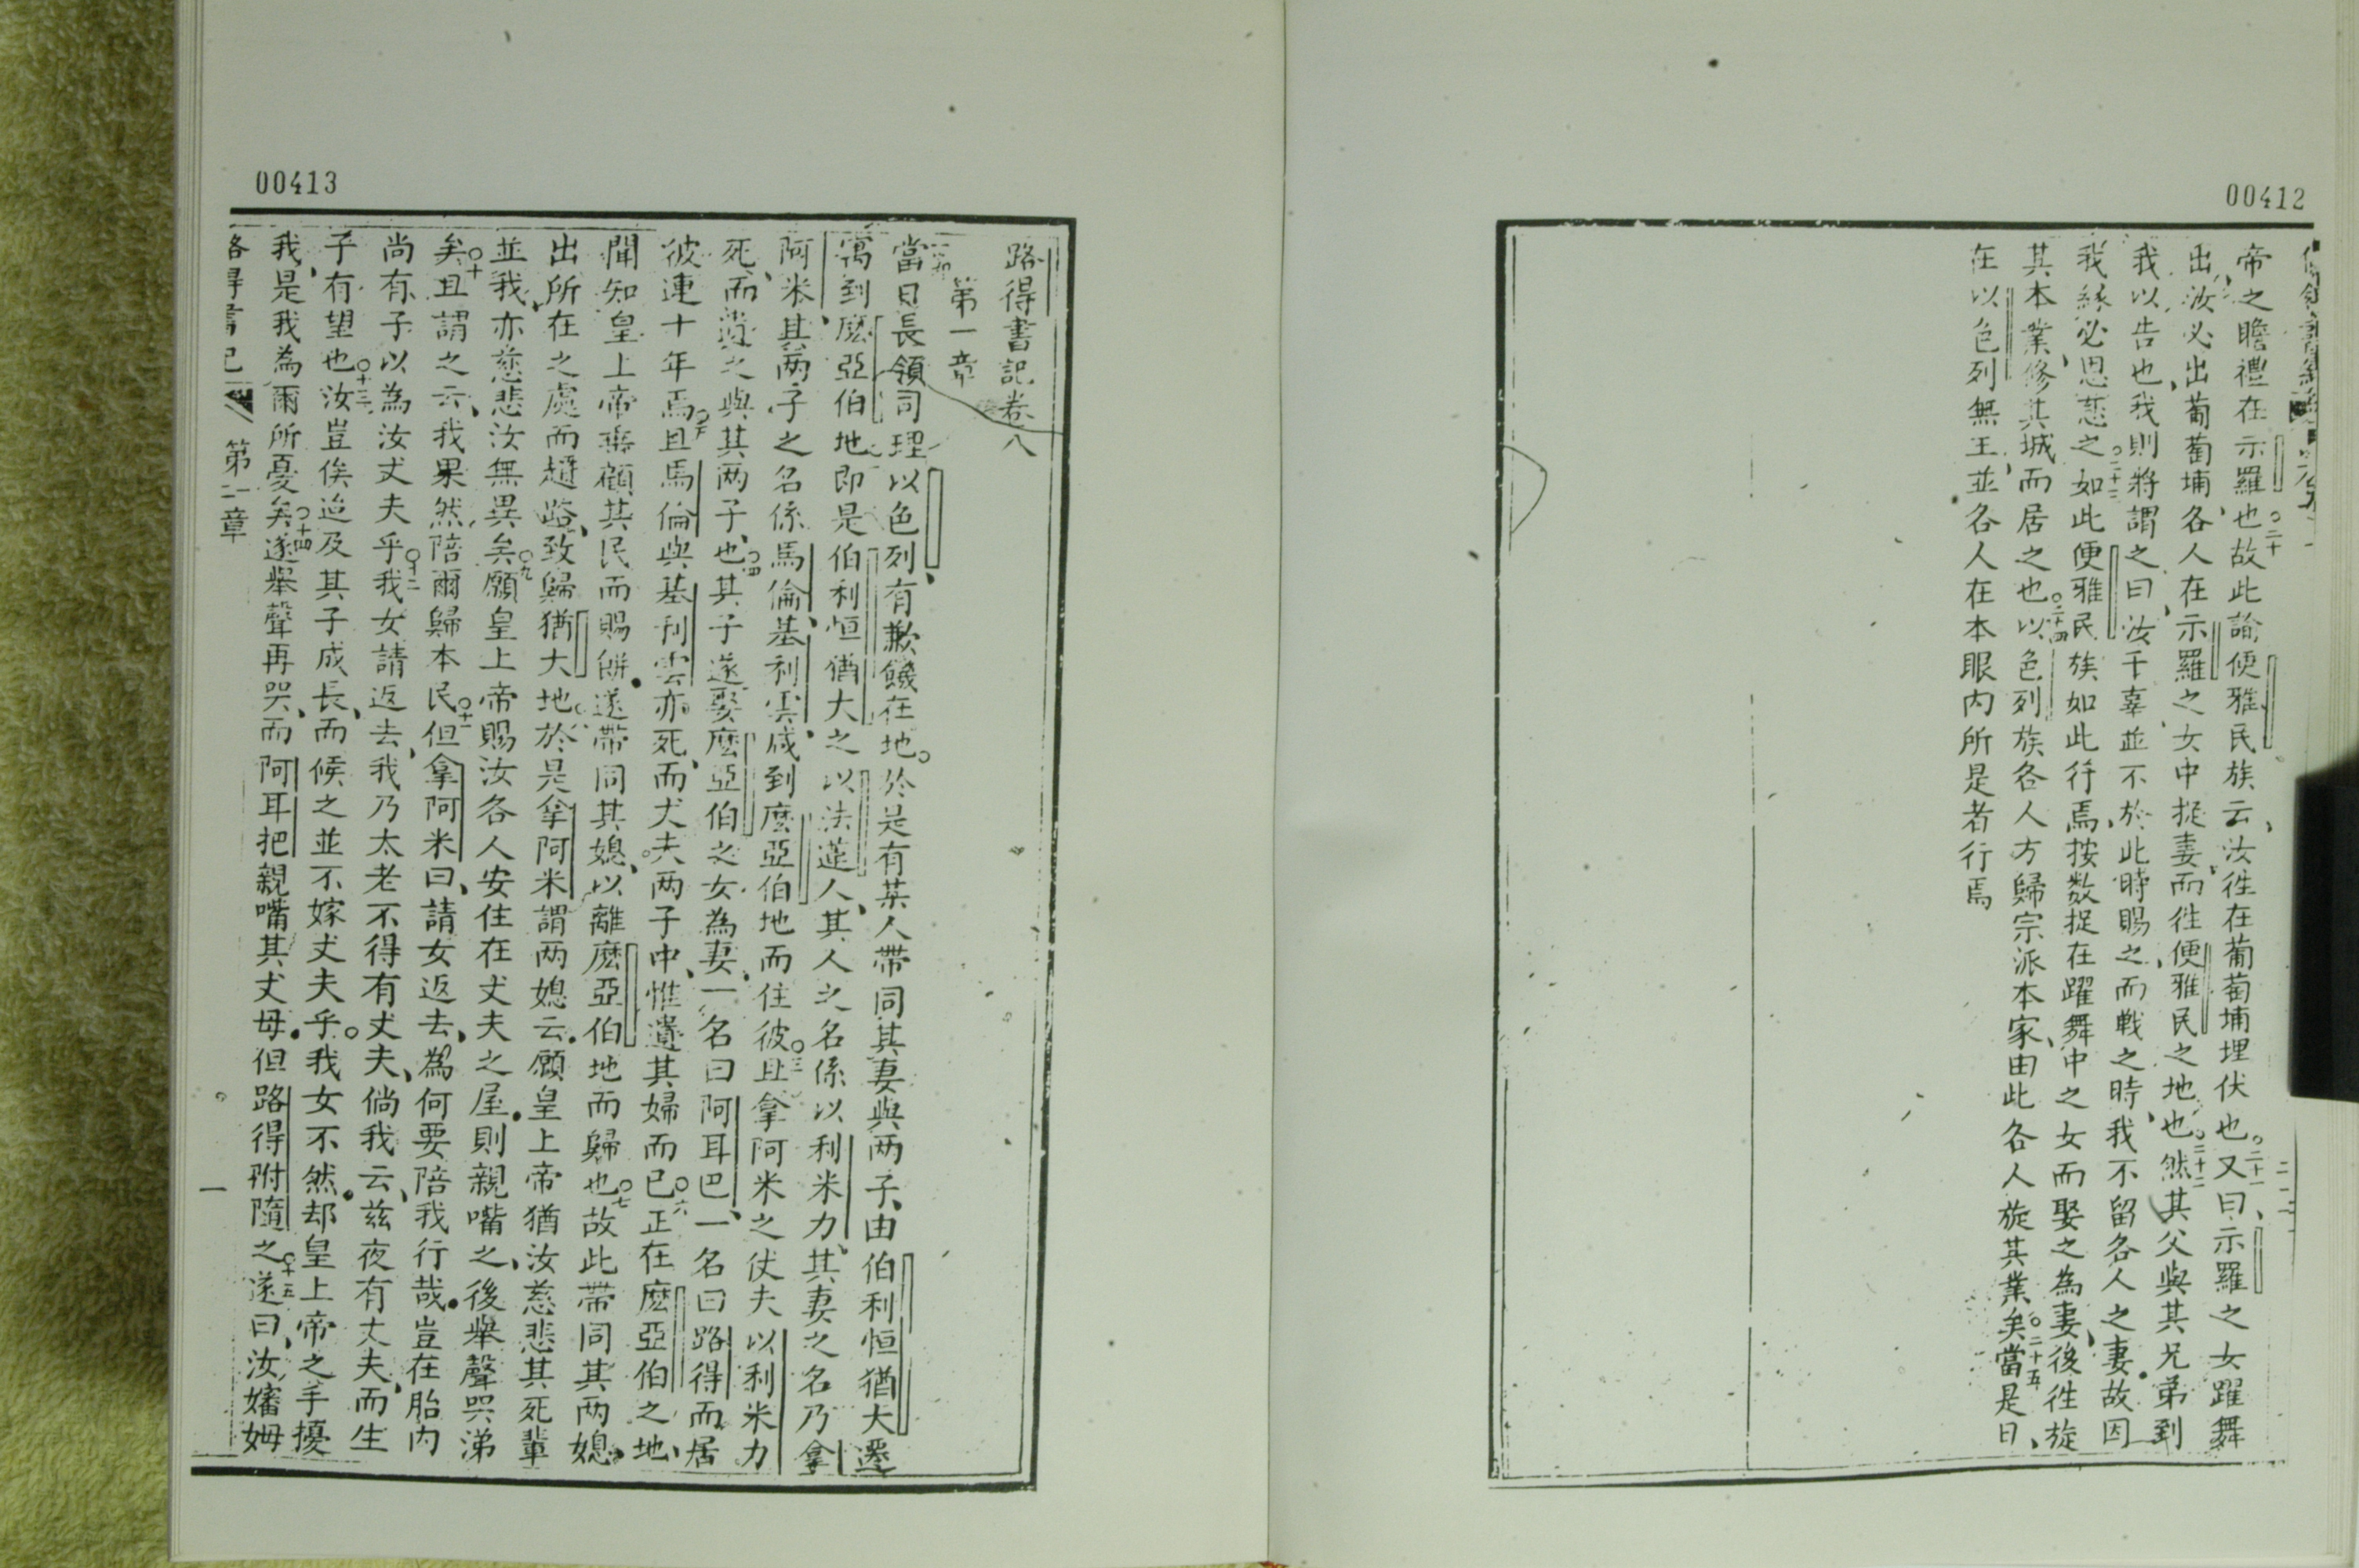 00412
帝之瞻禮在示羅也○二十故此諭便雅民族云、汝徃在葡萄埔埋伏也○二十一又曰、示羅之女躍舞
出、汝必出葡萄埔、各人在示羅之女中捉妻、而徃便雅民之地也○二十二然其父與其兄弟到
我以告也、我則將謂之曰、汝千辜並不於此時賜之、而戰之時、我不留各人之妻、故因
我緣必思慈之○二十三如此便雅民族如此行焉、按数捉在躍舞中之女而娶之為妻、後徃旋
其本業、修其城而居之也○二十四以色列族各人方歸宗派本家、由此各人旋其業矣○二十五當是日、
在以色列無王、並各人在本眼内所是者行焉
00413
路得書記卷八
第一章
當日長領司理以色列、有歉饑在地。於是有某人帶同其妻與两子、由伯利恒猶大遷
寓到麼亞伯地即是伯利恒猶大之以法蓮人、其人之名係以利米力、其妻之名乃拿
阿米、其两子之名係馬倫、基利雲、咸到麼亞伯地而住彼○三且拿阿米之伕夫以利米力
死、而遺之與其两子、也○四其子遂娶麼亞伯之女為妻、一名曰阿耳巴、一名曰路得而居
彼連十年焉○五且馬倫與基利雲亦死、而丈夫两子中、惟遺其婦而已○六正在麼亞伯之地、
聞知皇上帝垂顧其民而賜餅、遂帶同其媳、以離麼亞伯地而歸也○七故此帶同其两媳、
出所在之處而趲路、致歸猶大地○八於是拿阿米謂两媳云、願皇上帝猶汝慈悲其死輩
並我、亦慈悲汝無異矣○九願皇上帝賜汝各人安住在丈夫之屋、則親嘴之、後舉聲哭涕
矣○十且謂之云、我果然陪爾歸本民○十一但拿阿米曰、請女返去、為何要陪我行哉、豈在胎内
尚有子以為汝丈夫乎○十二我女請返去、我乃太老不得有丈夫、倘我云、兹夜有丈夫、而生
子有望也○十三汝豈俟迨及其子成長、而候之並不嫁丈夫乎。我女不然、却皇上帝之手擾
我、是我為爾所憂矣○十四遂舉聲再哭、而阿耳把親嘴其丈母、但路得附隨之○十五遂曰、汝嬸姆
路得書記 第一章 一